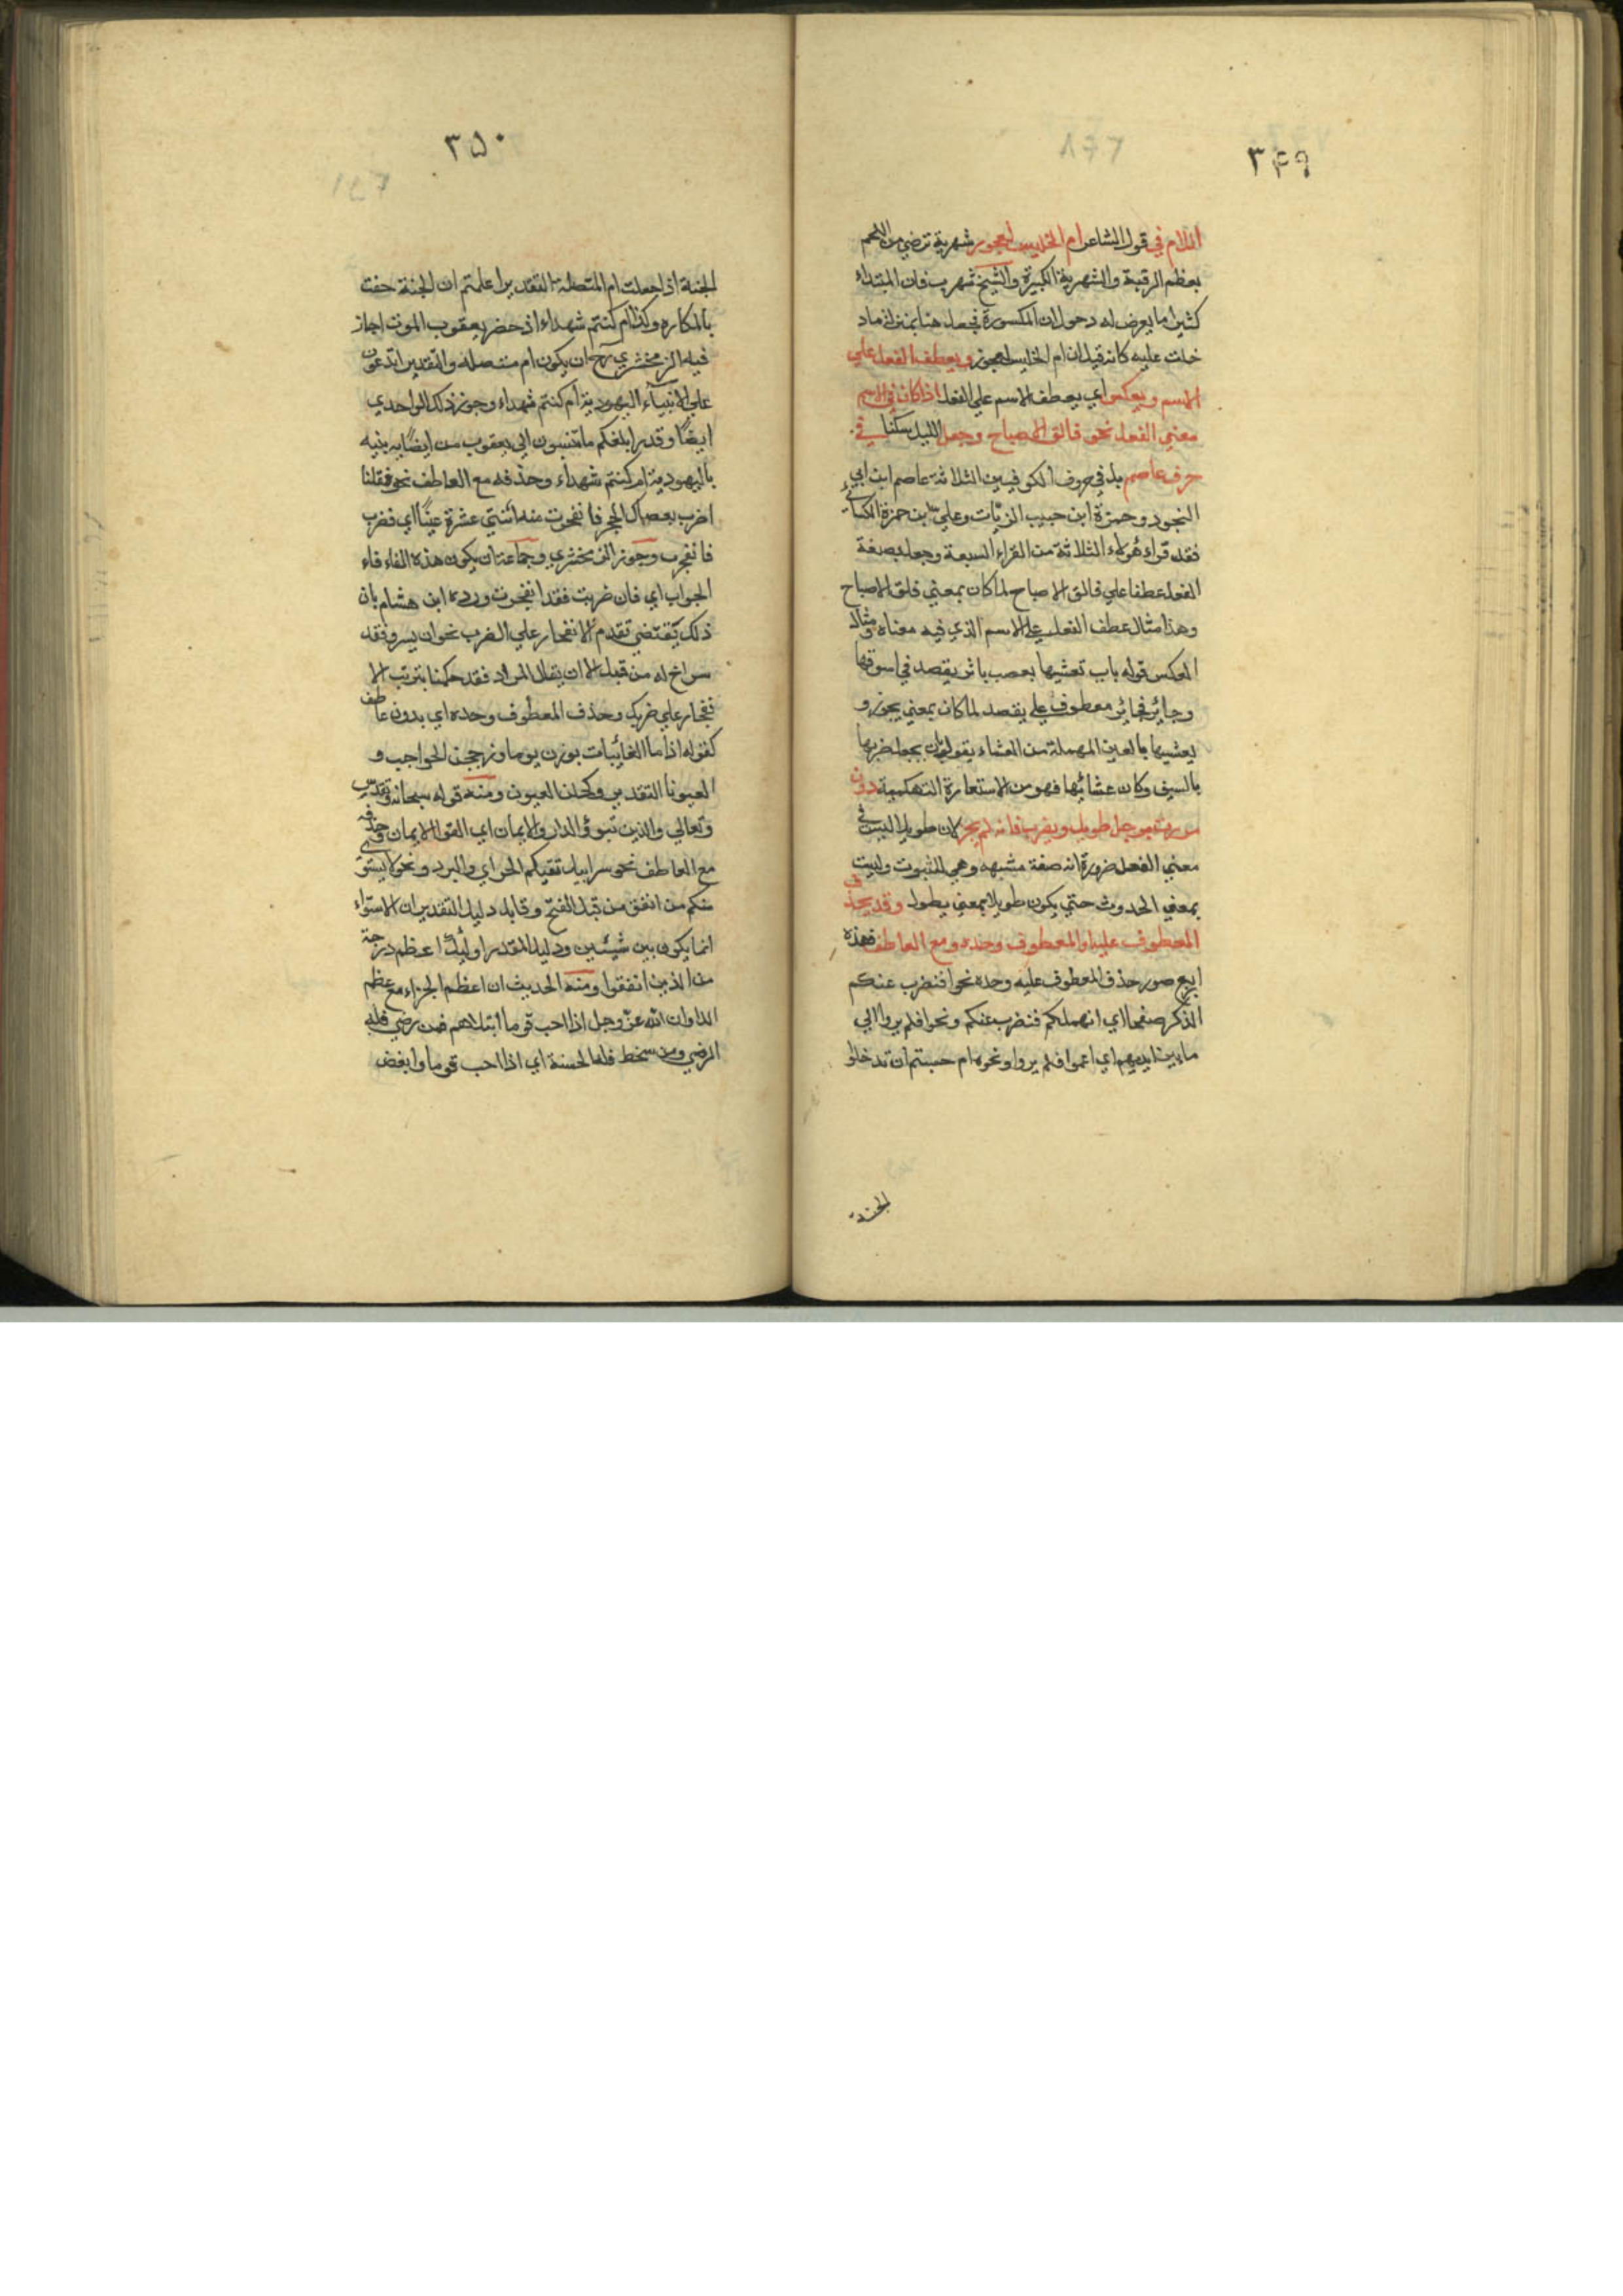 ٣٤٩
اللام في قول الشاعر ام الحليس لعجوز شهربة ترضي من اللحم
بعظم الرقبة والشهربة الكبيرة والشيخ شهرب فان المبتداء
كثيرا ما يعرض له دخول ان المكسورة فجعل هنا بمنزلة ماد
خلت عليه كانه قيل ان ام الحليس لعجوز ويعطف الفعل علي
الاسم وبعكس اي يعطف الاسم علي الفعل اذا كان في الاسم
معني الفعل نحو فالق الاصباح وجعل الليل سكنا في
حرف عاصم بل في حروف الكوفيين الثلاثة عاصم ابن ابي
النجود وحمزة ابن حبيب الزيّات وعلي بن حمزة الكسائي
فقد قراء هٰؤلاء الثلاثة من القراء السبعة وجعل بصيغة
الفعل عطفا علي فالق الاصباح لما كان بمعني فلق الاصباح
وهذا مثال عطف الفعل علي الاسم الذي فيه معناه ومثال
العكس قوله بات تعشيها بعصب باثر يقصد في اسوقها
وجائر فجائر معطوف علي يقصد لما كان بمعني يجوز و
يعشيها بالعين المهملة من العشاء يقول بان يجعل ضربها
بالسيف وكان عشائها فهو من الاستعارة التهكمية دون
مررت برجل طويل ويضرب فانه لم يجز لان طويلا ليس في
معني الفعل ضرورة انه صفة مشبهه وهي للثبوت وليست
بمعني الحدوث حتي يكون طويلا بمعني يطول وقد يحذف
المعطوف عليه او المعطوف وحده ومع العاطف فهذه
اربع صور حذف المعطوف عليه وحده نحو افنضرب عنكم
الذكر صفحا اي انهملكم فنضرب عنكم ونحو افلم يروا الي
ما بين ايديهم اي اعموا فلم يروا ونحو ام حسبتم ان تدخلوا
الجنة
٣٥٠
الجنة اذا جعلت ام المتصلة التقدير اعلمتم ان الجنة حفت
بالمكاره وكذا ام كنتم شهداء اذ حضر يعقوب الموت اجاز
فيه الزمخشري ان يكون ام متصله والتقدير اتدعون
علي الانبياء اليهودية ام كنتم شهداء وجوز ذلك الواحدي
ايضًا وقدر ابلغكم ما تنسبون الي يعقوب من ايصائه بنيه
باليهودية ام كنتم شهداء وحذفه مع العاطف نحو فقلنا
اضرب بعصاك الحجر فانفجرت منه اثنتي عشرة عينًا اي فضرب
فانفجرت وجوز الزمخشري وجماعة ان يكون هذه الفاء فاء
الجواب اي فان ضربت فقد انفجرت ورده ابن هشام بان
ذلك يقتضي تقدم الانفجار علي الضرب نحو ان يسرق فقد
سرق اخ له من قبل الا ان يقال المراد فقد حكمنا بترتب الا
نفجار علي ضربك وحذف المعطوف وحده اي بدون عاطف
كقوله اذا ما الغانيات برزن يوما وزججن الحواجب و
العيونا التقدير وكحلن العيون ومنه قوله سبحانه وتقدس
وتعالي والذين تبوؤ الدار والايمان اي القوا الايمان وحذفه
مع العاطف نحو سرابيل تقيكم الحر اي والبرد ونحو لا يستوي
منكم من انفق من قبل الفتح وقابل دليل التقدير ان الاستواء
انما يكون بين شيئين ودليل المقدر اولئك اعظم درجة
من الذين انفقوا ومنه الحديث ان اعظم الجزاء مع عظم
البلا وان الله عزّ وجل اذا احب قوما ابتلاهم فمن رضي فله
الرضي ومن سخط فله الحسنة اي اذا احب قوما وابغض